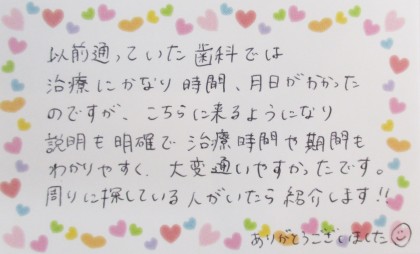 以前通っていた歯科では
治療にかなり時間、月日がかかった
のですが、こちらに来るようになり
説明も明確で治療時間や期間も
わかりやすく、大変通いやすかったです。
周りに探している人がいたら紹介します!!
ありがとうございました☺